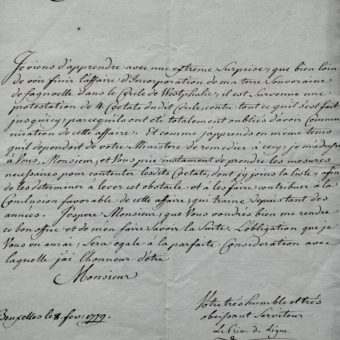 Je viens d'apprendre avec une extrême Surprise, que bien loin
de voir finir l'affaire d'Incorporation de ma terre Souveraine
de fagnoelle dans le Cercle de Westphalie, il est Survenue une
protestation de 4 Coetats dudit Cercle contre tout ce qui s'est fait
jusqu'icy, parcequ'ils ont été totalement oubliés d'avoir Commu
nication de cette affaire. Et comme j'apprends en même tems
qu'il dependoit de votre Ministere de remedier à cecy, je m'adresse
à Vous, Monsieur, et Vous prie instament de prendre les mesures
necessaires pour contenter lesdts Coetats, dont j'y joins la liste, afin
de les determiner à lever cet obstacle et à les faire contribuer à la
Conclusion favorable de cette affaire, qui traine depuis tant des
années. J'espere Monsieur, que Vous voudrés bien me rendre
ce bon office et de m'en faire Savoir la Suite. L'obligation que je
Vous en aurai, Sera egale à la parfaite Consideration avec
laquelle j'ai l'honneur d'être
Monsieur
Bruxelles le 8 fev. 1779.
Votre très humble et très
obeissant Serviteur
le Prince de Ligne